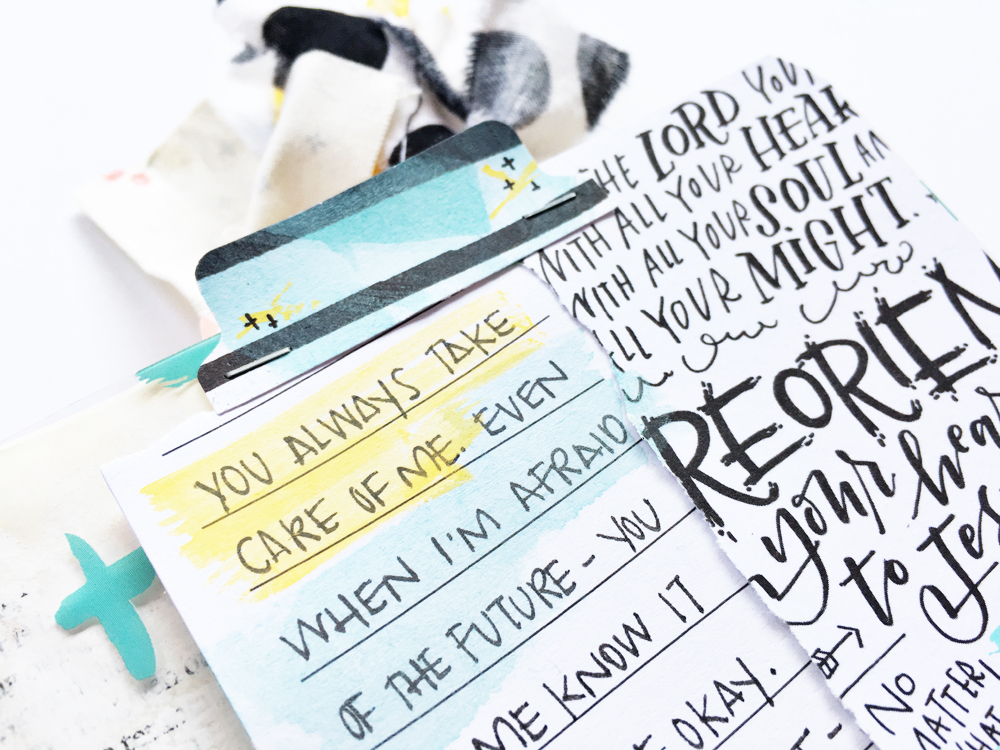 YOU ALWAYS TAKE
CARE OF ME. EVEN
WHEN I'M AFRAID
OF THE FUTURE - YOU
ME KNOW IT
OKAY.
THE LORD YOUR
WITH ALL YOUR HEAR
WITH ALL YOUR SOUL AN
ALL YOUR MIGHT.
REORIEN
your hear
to Jes
NO
MATTER